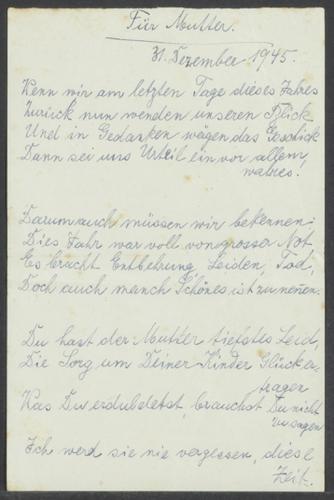 Für Mutter.
31. Dezember 1945.
Wenn wir am letzten Tage dieses Jahres
Zurück nun wenden unseren Blick
Und in Gedanken wägen das Geschick
Dann sei uns Urteil ein vor allem
wahres!
Darum auch müssen wir bekennen:
Dies Jahr war voll von grosser Not,
Es bracht Entbehrung, Leiden, Tod,
Doch auch manch Schönes ist zu nennen.
Du hast der Mutter tiefstes Leid,
Die Sorg um Deiner Kinder Glück er-
tragen
Was Du erduldetst, brauchst Du nicht
zu sagen
Ich werd sie nie vergessen, diese
Zeit.